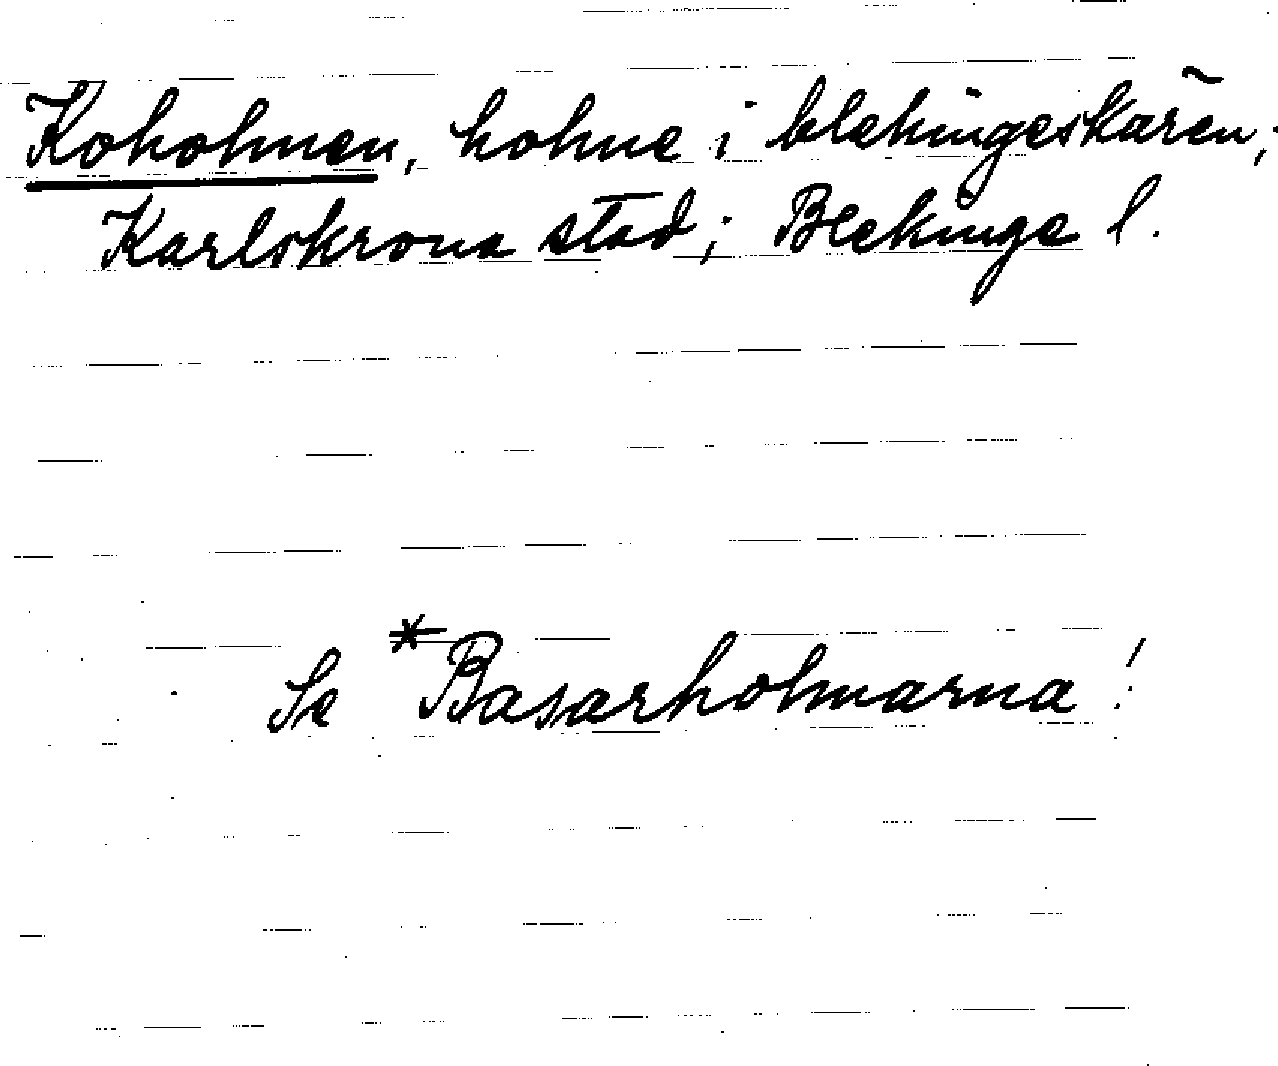 Koholmen, holme i blekingeskären;
Karlskrona stad; Blekinge l.
Se *Basarholmarna!